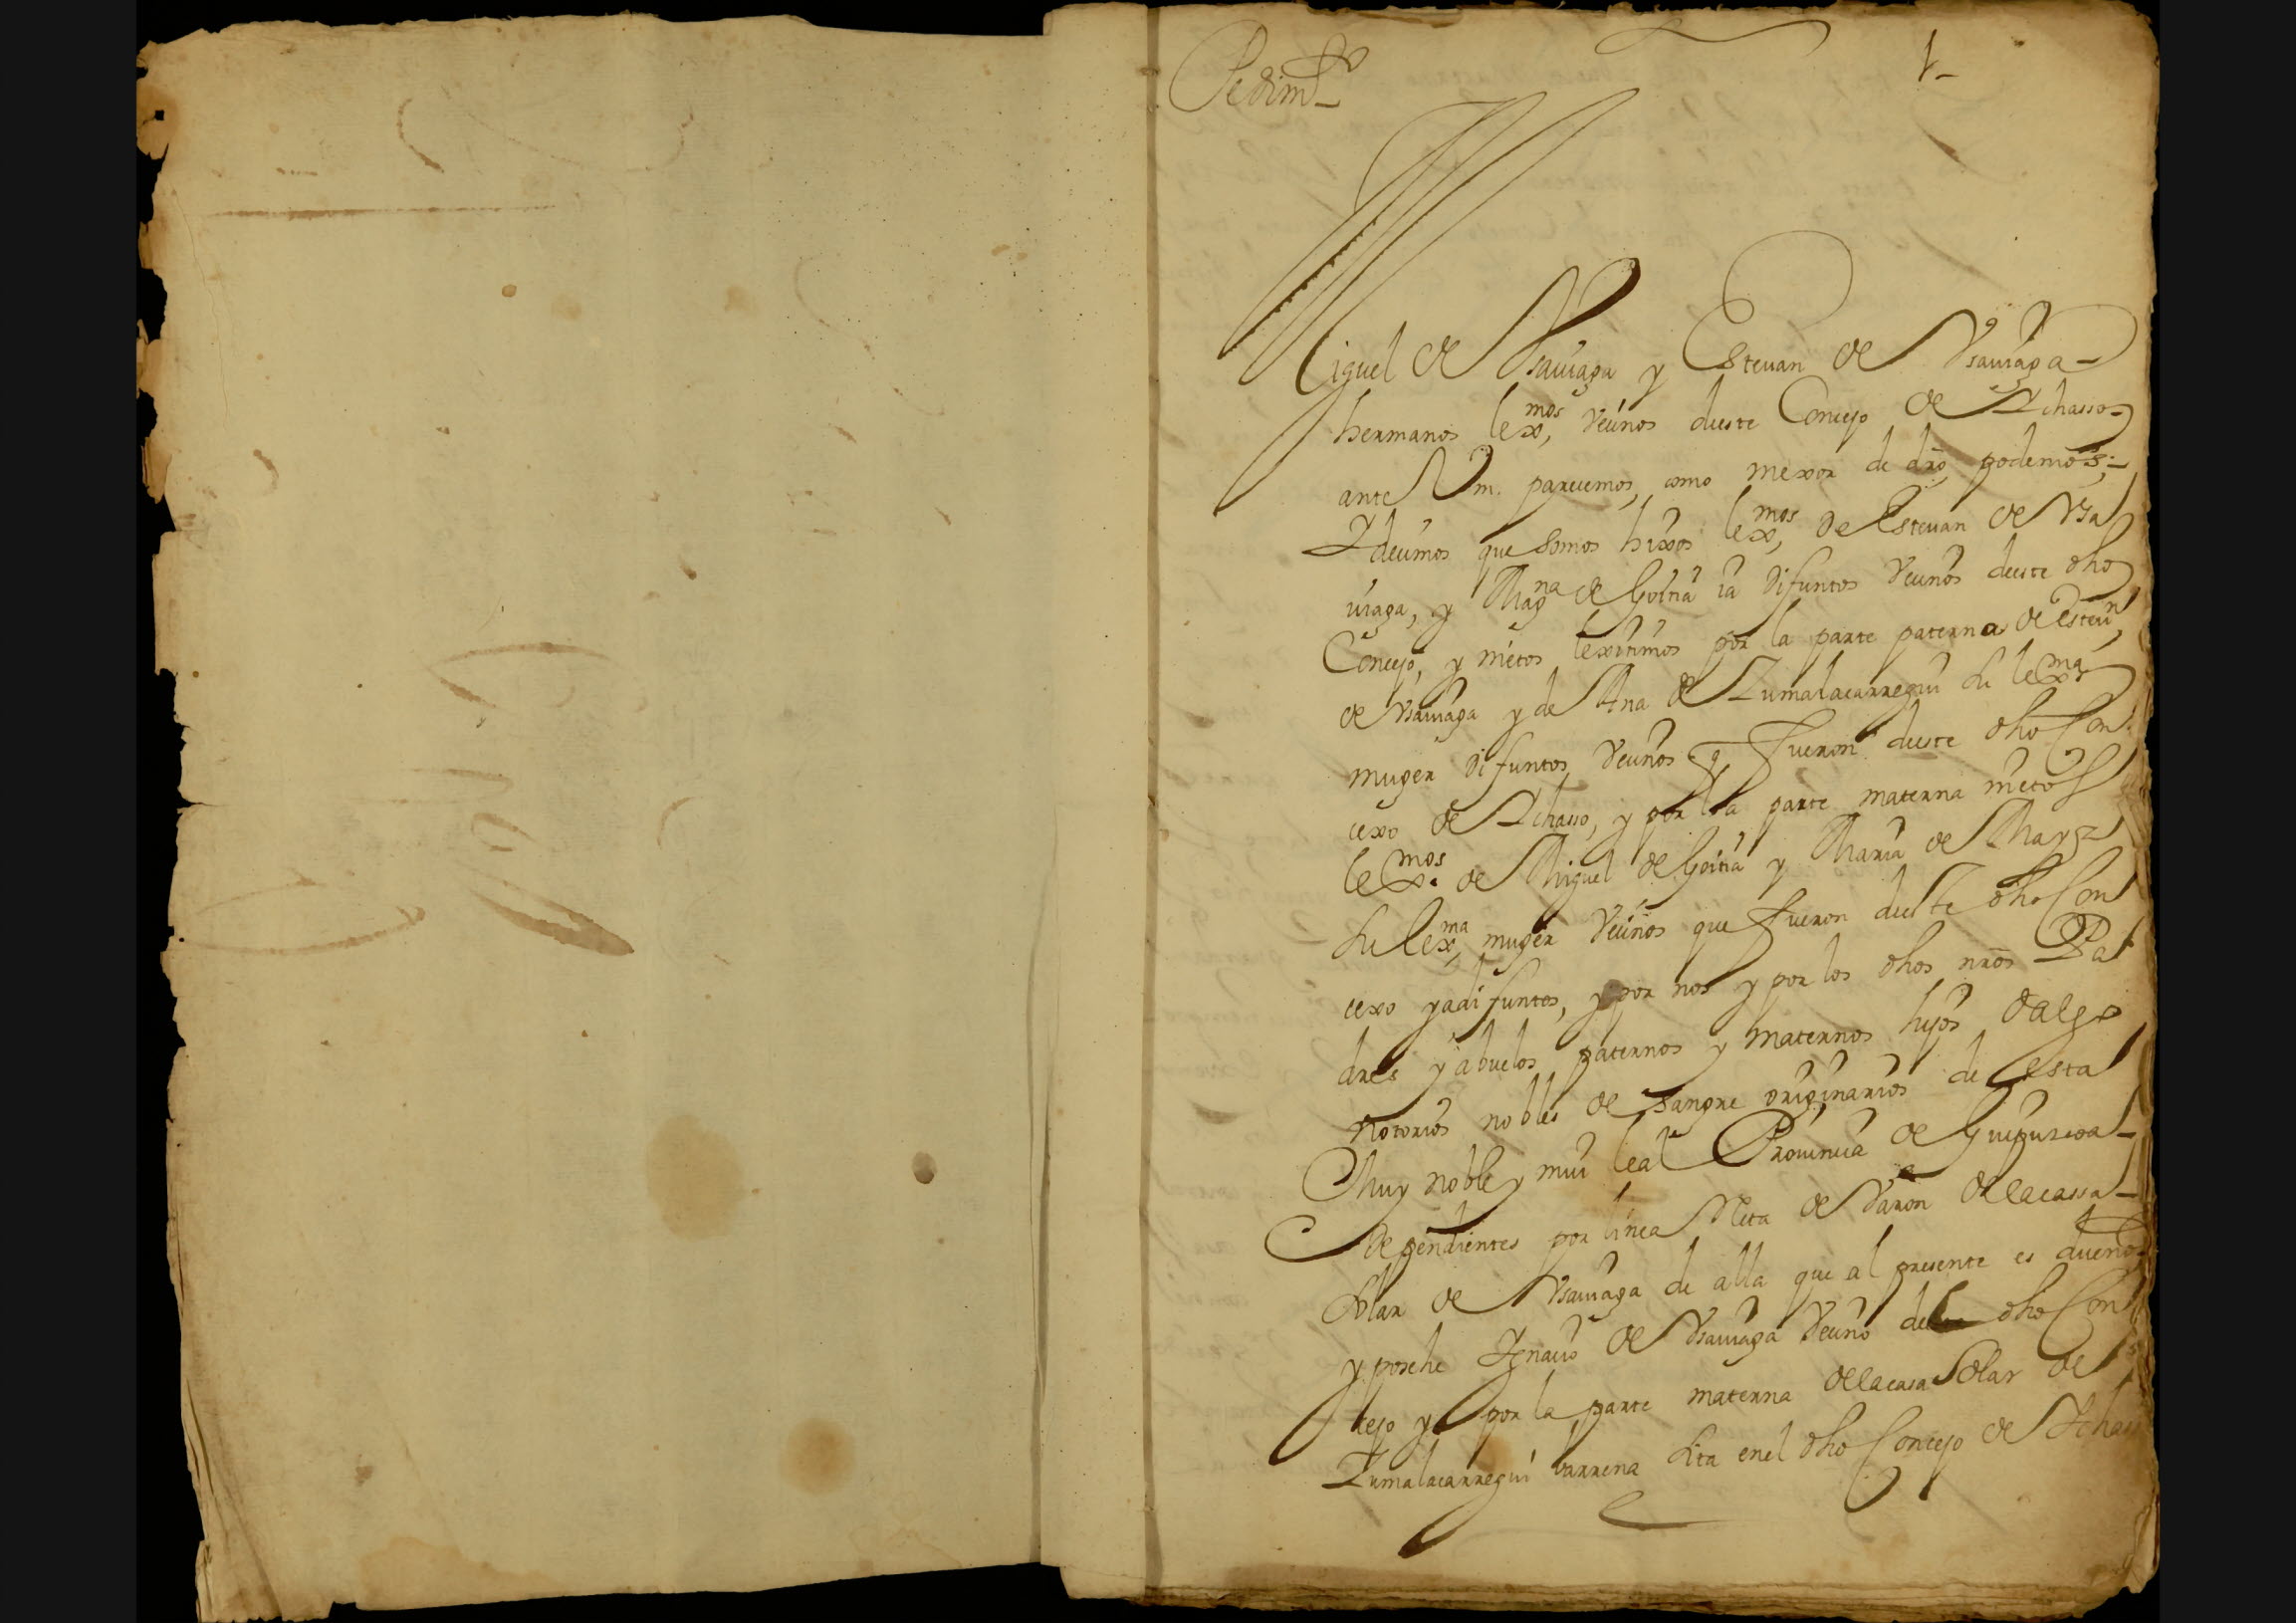 Pedimto
1-
Miguel de Vsauiaga y Esteuan de Vsauiaga-
hermanos lexmos, veçinos deeste Conçejo de Ichasso-
ante Vm. pareçemos, como mexor de dro, podemos;-
Y deçimos que somos hixos lexmos, de Esteuan de Vsa
uiaga, y Magna de Goitia ia difuntos veçinos deeste dho
Conçejo, y nietos lexitimos por la parte paterna de Esteun,
de Vsauiaga y de Ana de Zumalacarregui su lexma
muger difuntos veçinos q fueron deeste dho Con-
cexo de Ichasso, y por la parte materna nietos
lexmos. de Miguel de Goitia y Maria de Mayz
su lexma, muger veçinos que fueron deeste dho Con
cexo ya difuntos, y por nos y por los dhos nros Pa
dres y abuelos paternos y maternos hijos dalgo
notorios nobles de sangre originarios de esta
Muy noble y mui leal Prouinçia de Guipuzcoa-
dependientes por linea reta de varon de la cassa-
solar de Vsauiaga de alla que al presente es dueño
y posehe Ignaçio de Vsauiaga veçino del dho Con
cejo y por la parte materna de la casa solar de
Zumalacarregui varrena sita en el dho Conçejo de Ichass